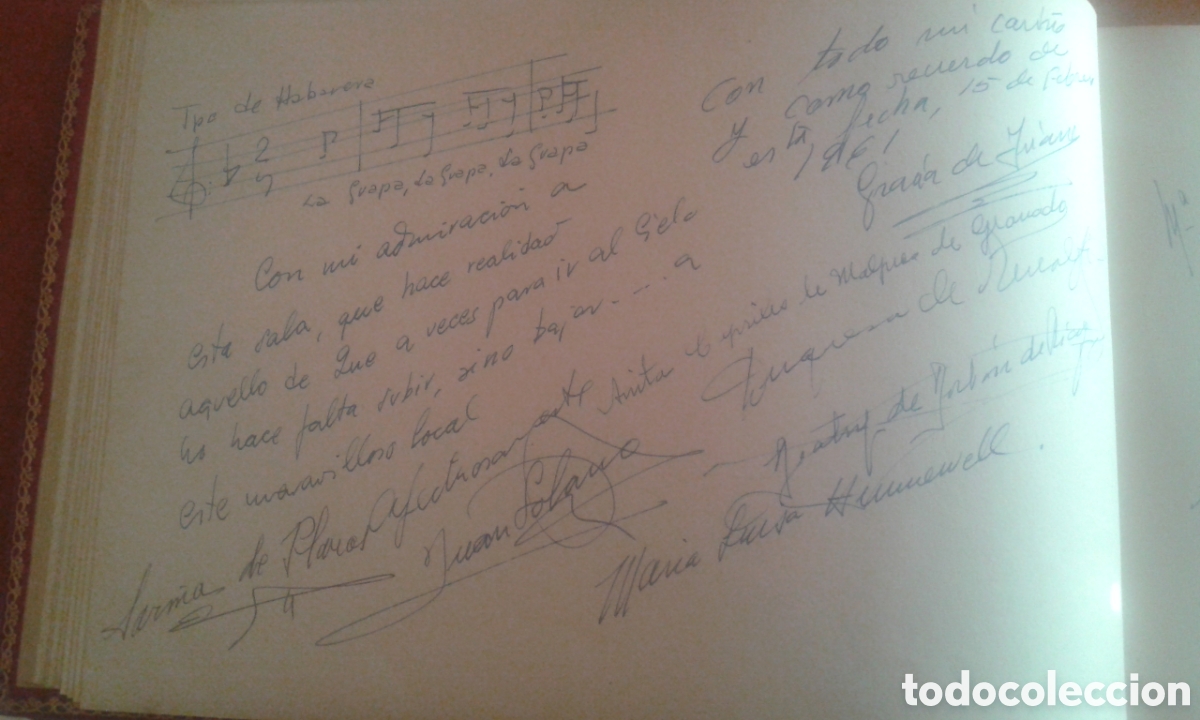 Tpo de Habanera
2
4
La Guapa, La Guapa, La Guapa
Con mi admiración a
esta sala, que hace realidad
aquello de Que a veces para ir al Cielo
no hace falta subir, sino bajar.... a
este maravilloso local
Afectuosamente
Juan Solano
de Plaza
Con todo mi cariño
y como recuerdo de
esta fecha, 15 de Febrero
1961
Gracia de Triana
Anita de Malpica de Granada
Duquesa de
Beatriz de Borbón de
Maria Luisa Hunnewell.
Mª
todocoleccion